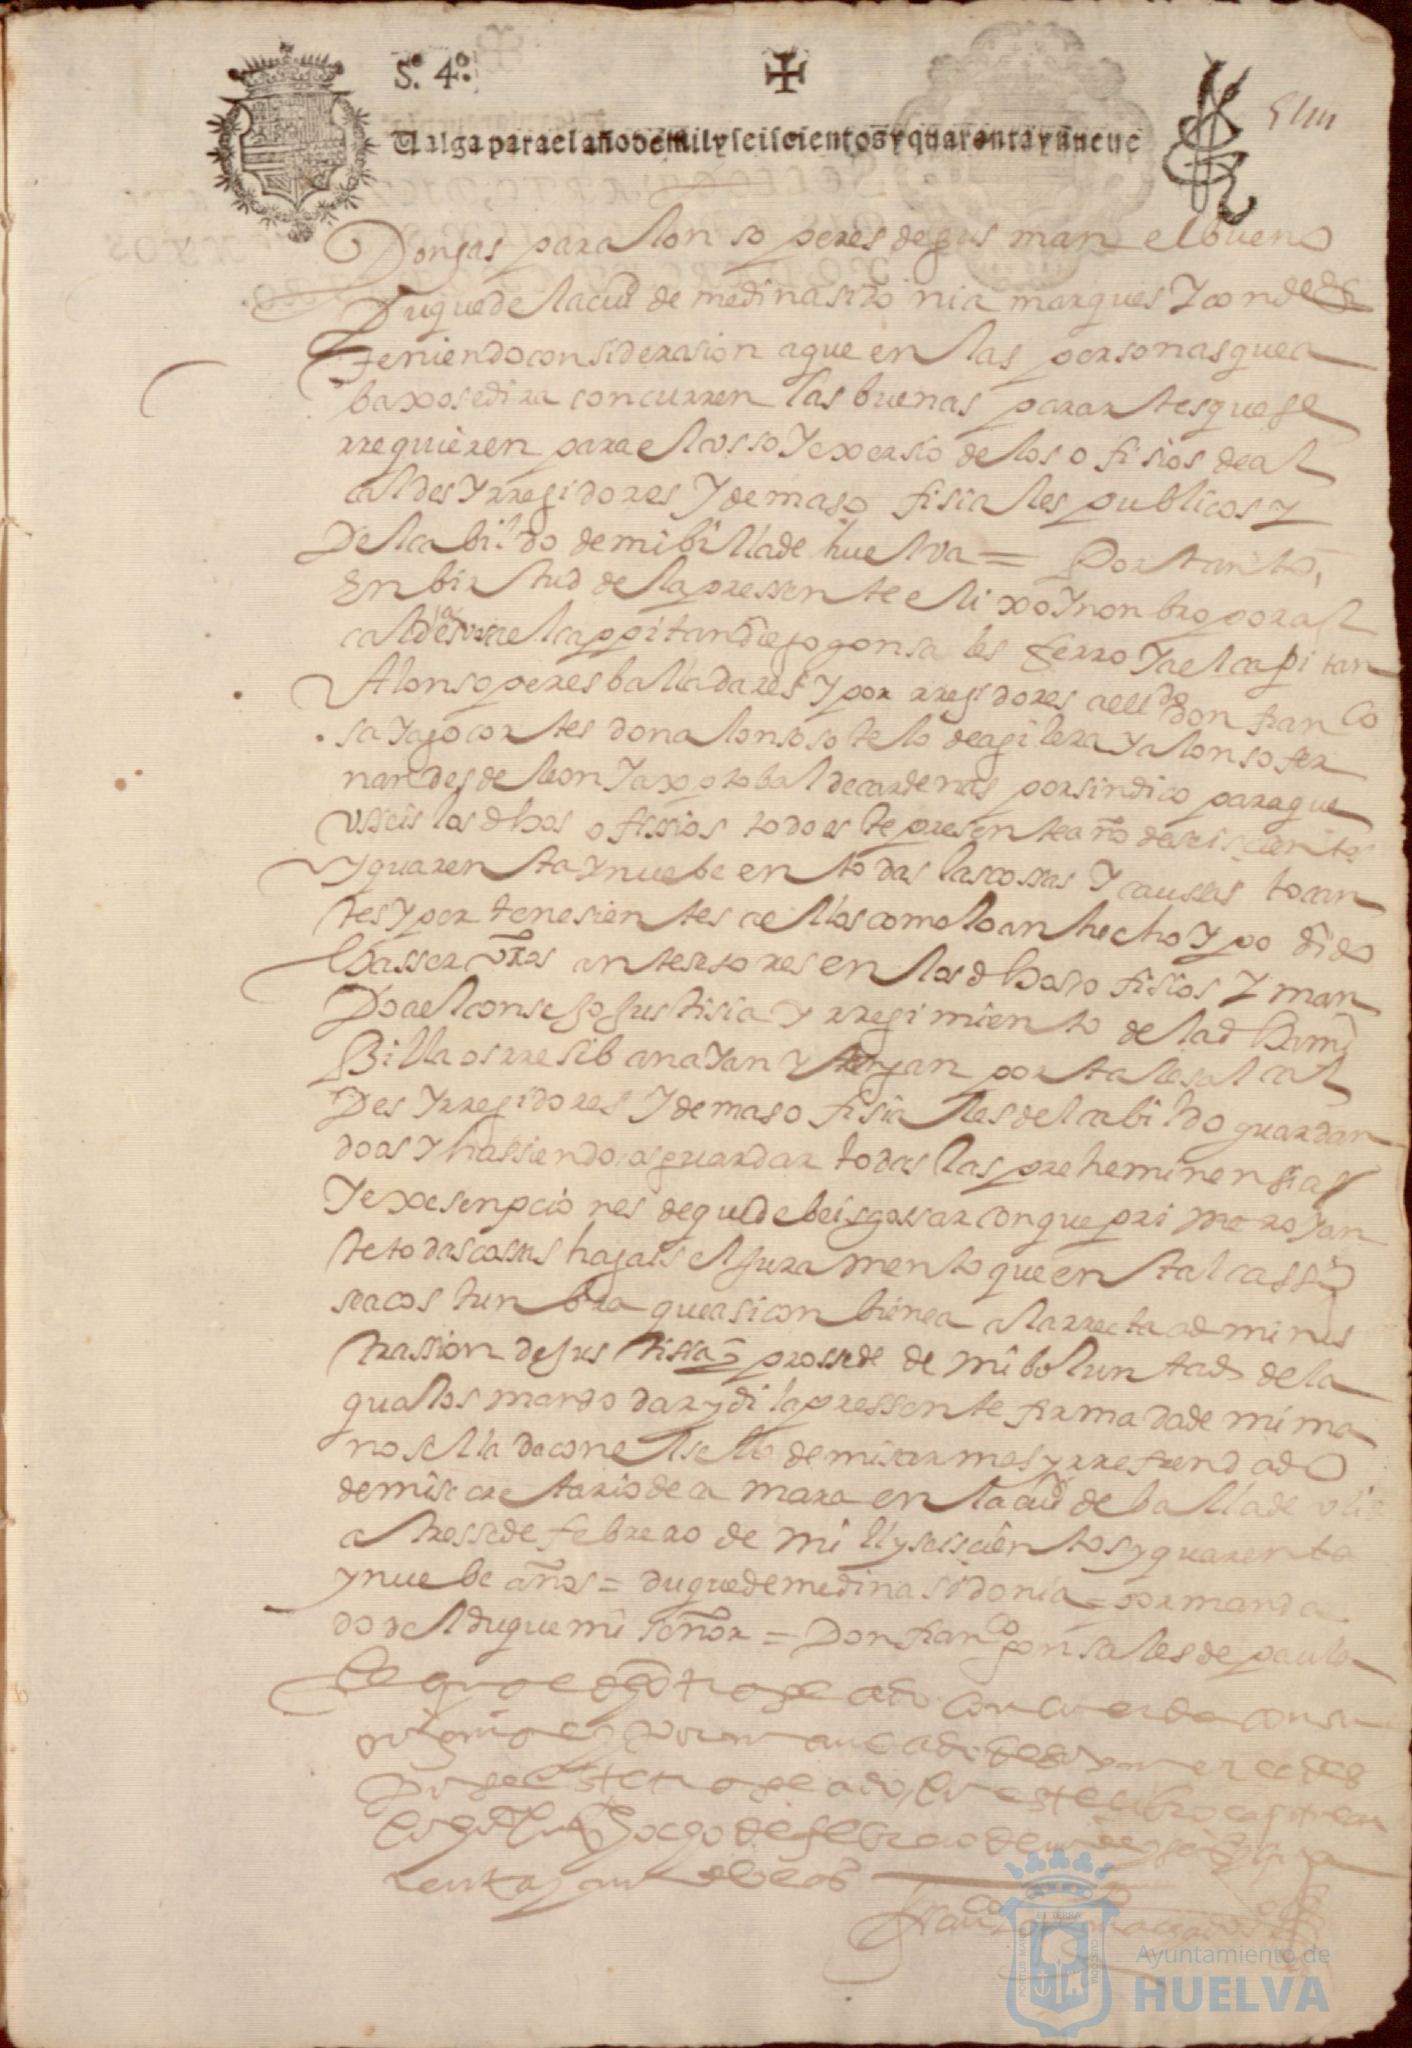 S.º 4.º
Valga para el año de mil y seiscientos y quarenta y nueve
Don gaspar alonso peres de gusman el bueno
Duque de la ciud de medina sidonia marques y conde
teniendo considerasion a que en las personas que a
baxo se dira concurren las buenas parartes que se
rrequieren para el usso y exersio de los ofisios de al
caldes y rregidores y demas ofisiales publicos y
Del cabildo de mi billa de huelva = Por tanto,
En birtud de la pressente elixo y nonbro por al
caldes al cappitan diego gonsales ferro y a el capitan
Alonso peres balladares y por rregidores a el ldo don franco
sayago cortes don alonso sotelo de agilera y alonso fer
nandes de leon y a xpotobal de cardenas por sindico para que
usseis los dhos ofissios todo este presente año de seiscientos
y quarenta y nuebe en todas las cossas y caussas tocan
tes y pertenesientes a ellos como lo an hecho y podido
hasser vros antesesores en los dhos ofisios y man
Do a el consejo justisia y rregimiento de la dha mi
Billa os rresiban ayan y tengan por tales alcal
Des y rregidores y demas ofisiales del cabildo guardan
doos y hassiendoos guardar todas las preheminensias
y exsenpciones de que debeis gossar con que primero y an
te todas cossas hagais el juramento que en tal casso
se acostunbra que asi conbiene a la rrecta adminis
trassion de justissia y prossede de mi boluntad de la
qual os mando dar y di la pressente firmada de mi ma
no sellada con el sello de mis armas y rrefrendado
de mi secretario de camara en la ciud de balladeolid
a tresse de febrero de mill y seisscientos y quarenta
y nuebe años = duque de medina sidonia = por manda
do del duque mi señor = Don franco gonsales de paula
El qual dho traslado concuerda con su
original y por mandado de sus mercedes
puse este traslado en este libro capitular
en huelva de febrero de mil y seis y qua
renta y nuebe años
franco
Ayuntamiento de
HUELVA